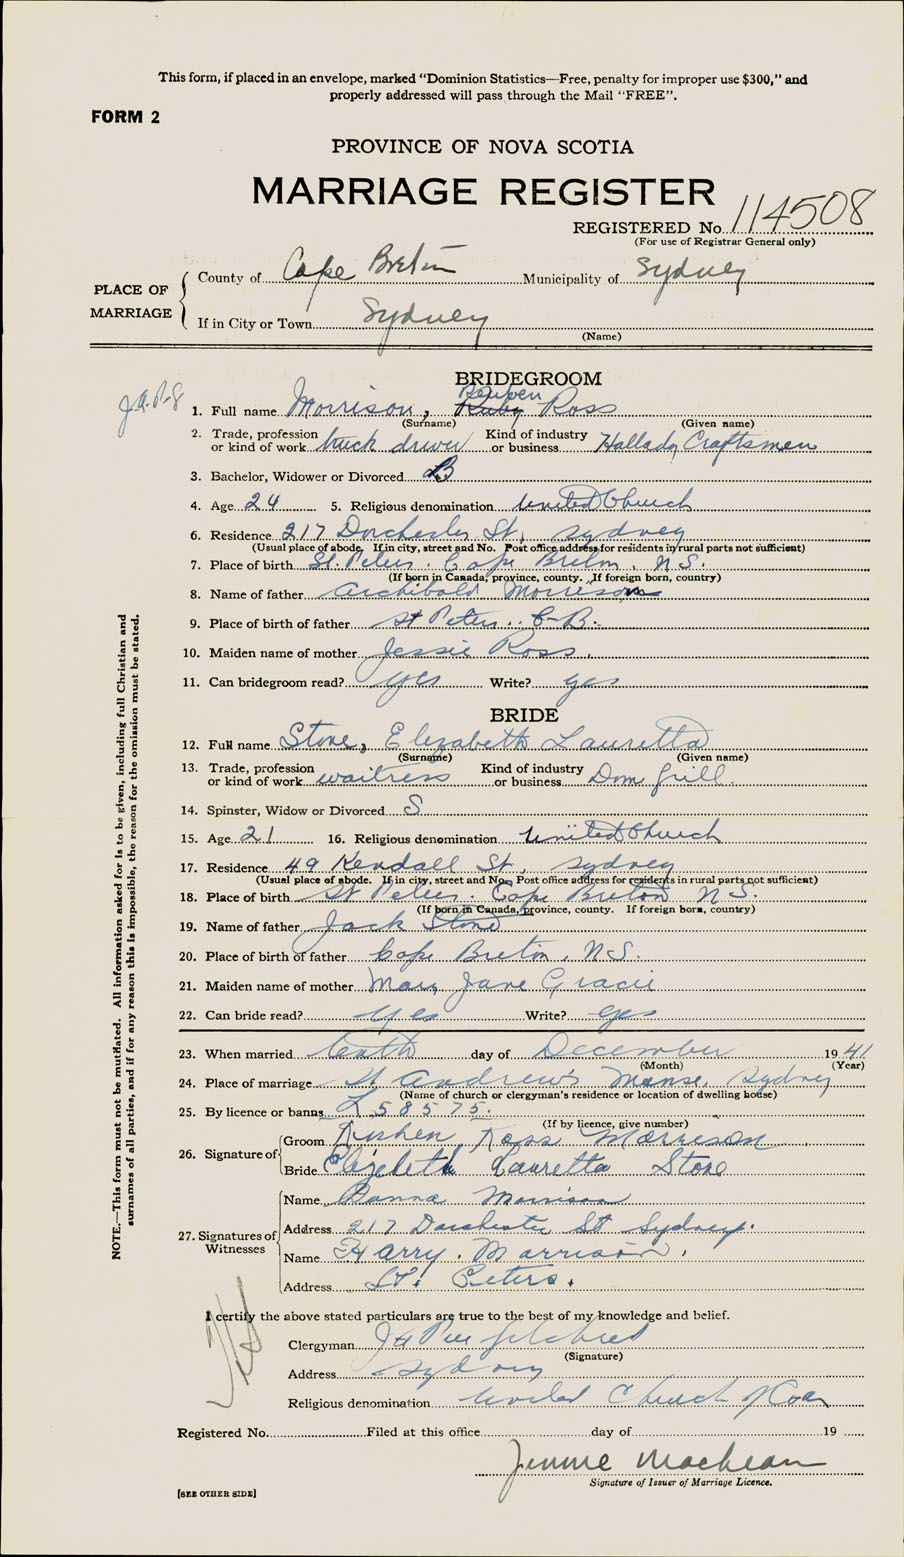 This form, if placed in an envelope, marked "Dominion Statistics—Free, penalty for improper use $300," and
properly addressed will pass through the Mail "FREE".
FORM 2
PROVINCE OF NOVA SCOTIA
MARRIAGE REGISTER
REGISTERED No. 114508
(For use of Registrar General only)
PLACE OF MARRIAGE
County of Cape Breton Municipality of Sydney
If in City or Town Sydney
(Name)
BRIDEGROOM
J.A.P-G
Reuben
1. Full name Morrison, Ruby Ross
(Surname) (Given name)
2. Trade, profession or kind of work truck driver Kind of industry or business Hallady Craftsmen
3. Bachelor, Widower or Divorced B
4. Age 24 5. Religious denomination United Church
6. Residence 217 Dorchester St, Sydney
(Usual place of abode. If in city, street and No. Post office address for residents in rural parts not sufficient)
7. Place of birth St. Peters. Cape Breton, N.S.
(If born in Canada, province, county. If foreign born, country)
8. Name of father Archibald Morrison
9. Place of birth of father St Peters.. C-B.
10. Maiden name of mother Jessie Ross.
11. Can bridegroom read? yes Write? yes
BRIDE
12. Full name Stone, Elizabeth Lauretta
(Surname) (Given name)
13. Trade, profession or kind of work waitress Kind of industry or business Dom Grill.
14. Spinster, Widow or Divorced S
15. Age 21 16. Religious denomination United Church
17. Residence 49 Kendall St, Sydney
(Usual place of abode. If in city, street and No. Post office address for residents in rural parts not sufficient)
18. Place of birth St Peters. Cape Breton N.S.
(If born in Canada, province, county. If foreign born, country)
19. Name of father Jack Stone
20. Place of birth of father Cape Breton, N.S.
21. Maiden name of mother Mary Jane Gracie
22. Can bride read? yes Write? yes
23. When married tenth day of December 1941
(Month) (Year)
24. Place of marriage St Andrew's Manse, Sydney
(Name of church or clergyman's residence or location of dwelling house)
25. By licence or banns L 58575.
(If by licence, give number)
26. Signature of
Groom Reuben Ross Morrison
Bride Elizabeth Lauretta Stone
27. Signatures of Witnesses
Name Donna Morrison
Address 217 Dorchester St Sydney.
Name Harry. Morrison.
Address St. Peters.
I certify the above stated particulars are true to the best of my knowledge and belief.
Clergyman
(Signature)
Address Sydney
Religious denomination United Church of Can
Registered No. Filed at this office day of 19
Jennie MacLean
Signature of Issuer of Marriage Licence.
[SEE OTHER SIDE]
NOTE.—This form must not be mutilated. All information asked for is to be given, including full Christian and
surnames of all parties, and if for any reason this is impossible, the reason for the omission must be stated.